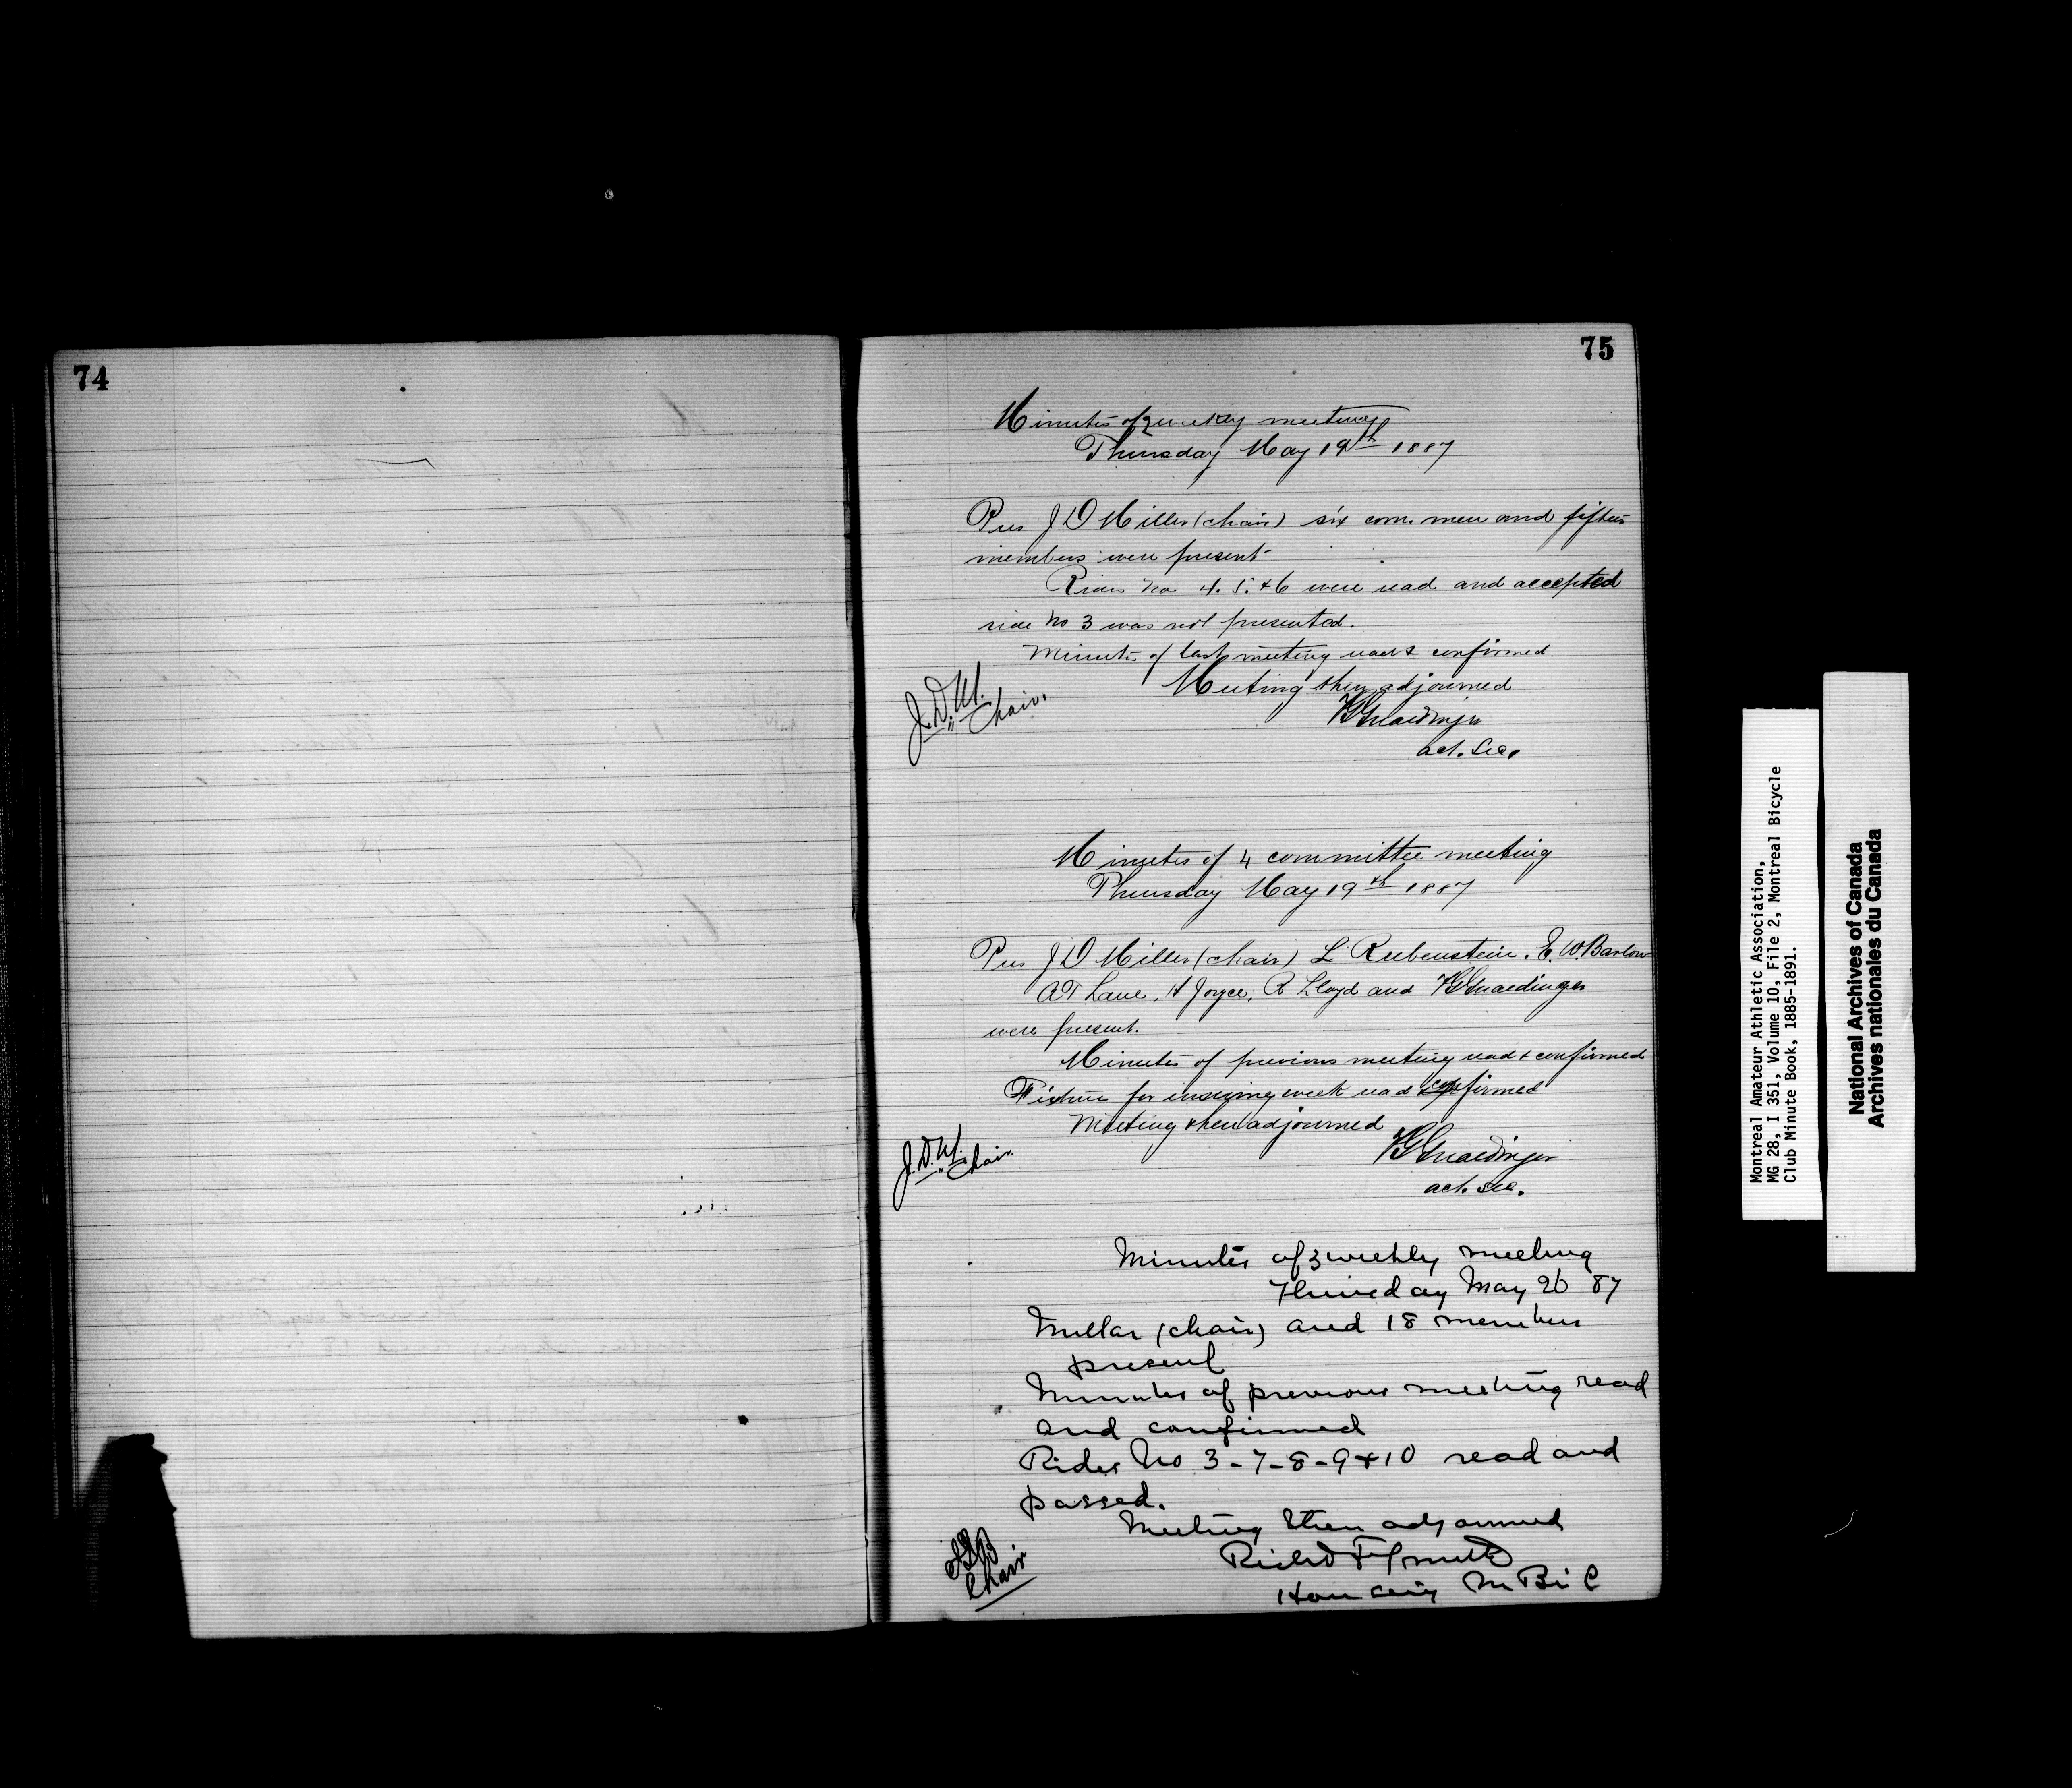 74
75
Minutes of 2 weekly meeting
Thursday May 19th 1887
Pres J D Miller (chair) six com. men and fifteen
members were present
Rides No 4. 5. & 6 were read and accepted
ride No 3 was not presented.
Minutes of last meeting read & confirmed
Meeting then adjourned
J.D.M.
Chair.
Gnaedinger
act. Sec.
Minutes of 4 committee meeting
Thursday May 19th 1887
Pres J D Miller (chair) L Rubenstein. E. W. Barlow
A T Lane, H Joyce, R Lloyd and Gnaedinger
were present.
Minutes of previous meeting read & confirmed
Fixture for ensuing week read & confirmed
Meeting then adjourned
J.D.M.
Chair.
Gnaedinger
act. sec.
Minutes of 3 weekly meeting
Thursday May 26 87
Millar (chair) and 18 members
present
Minutes of previous meeting read
and confirmed
Rides No 3-7-8-9+10 read and
passed.
Meeting then adjourned
Chair
Hon M Bi C
Montreal Amateur Athletic Association,
MG 28, I 351, Volume 10, File 2, Montreal Bicycle
Club Minute Book, 1885-1891.
National Archives of Canada
Archives nationales du Canada